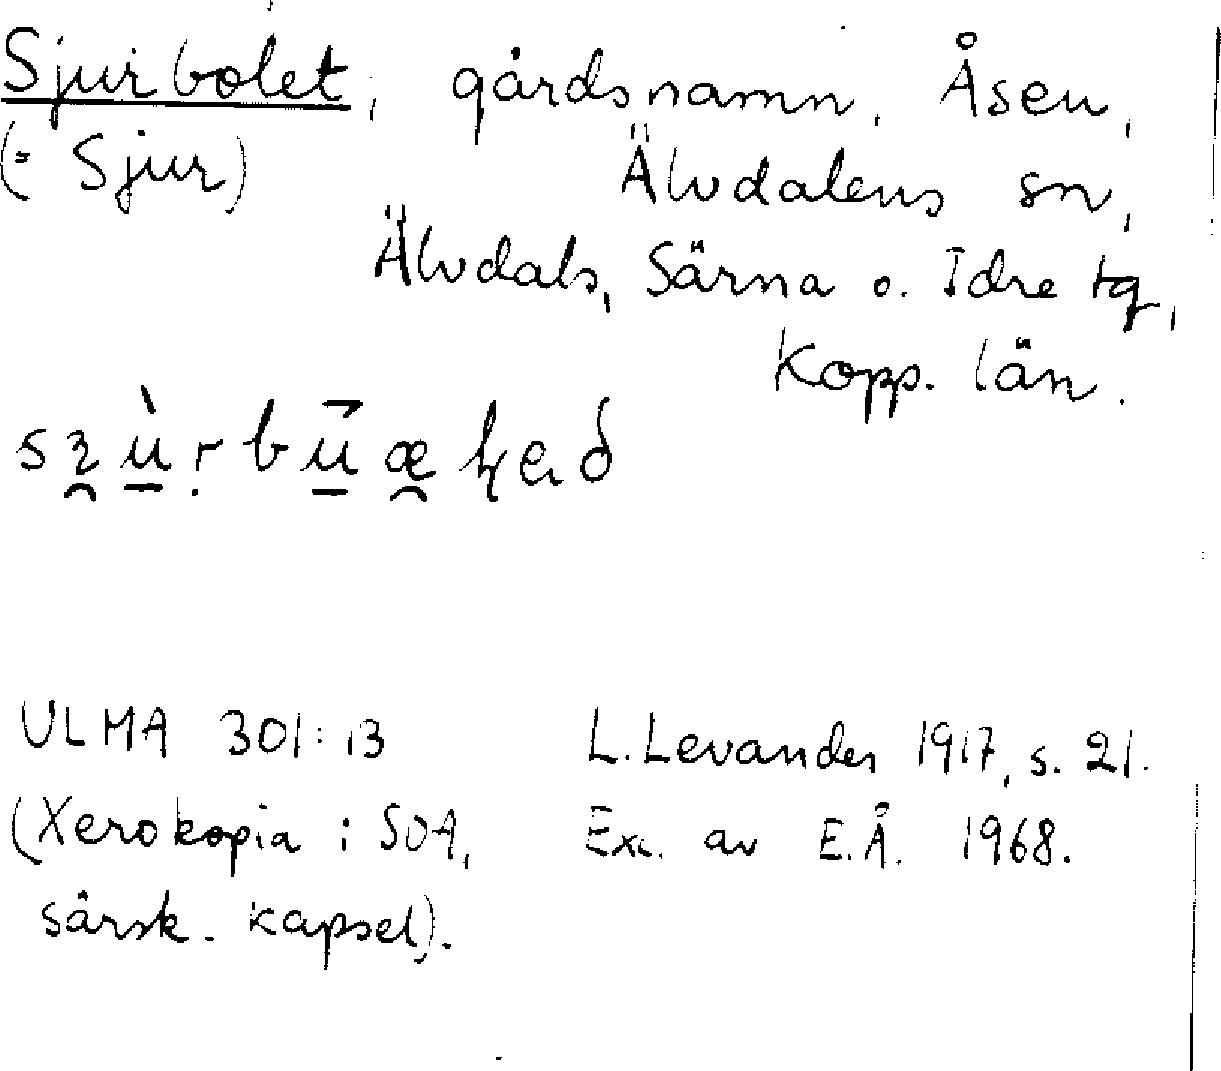 Sjurbolet, gårdsnamn, Åsen,
(= Sjur) Älvdalens sn,
Älvdals, Särna o. Idre tg,
Kopp. län.
ULMA 301:13 L. Levander 1917, s. 21.
(Xerokopia i SOA, Exc. av E.Å. 1968.
särsk. kapsel).